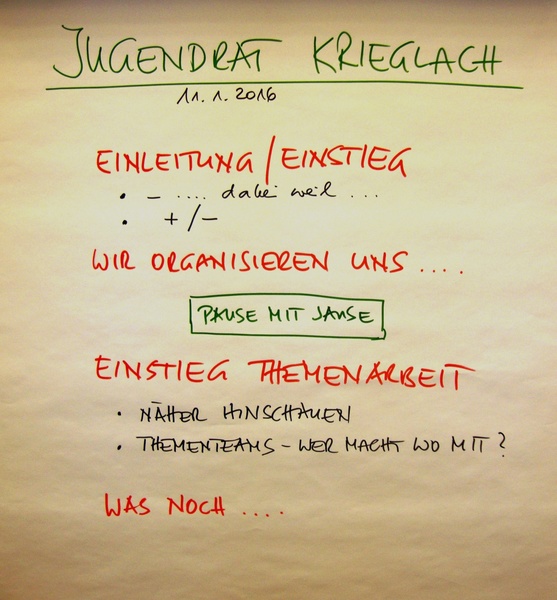 JUGENDRAT KRIEGLACH
11.1.2016
EINLEITUNG/EINSTIEG
• – .... dabei weil ...
• +/–
WIR ORGANISIEREN UNS ....
PAUSE MIT JAUSE
EINSTIEG THEMENARBEIT
• NÄHER HINSCHAUEN
• THEMENTEAMS – WER MACHT WO MIT?
WAS NOCH ....